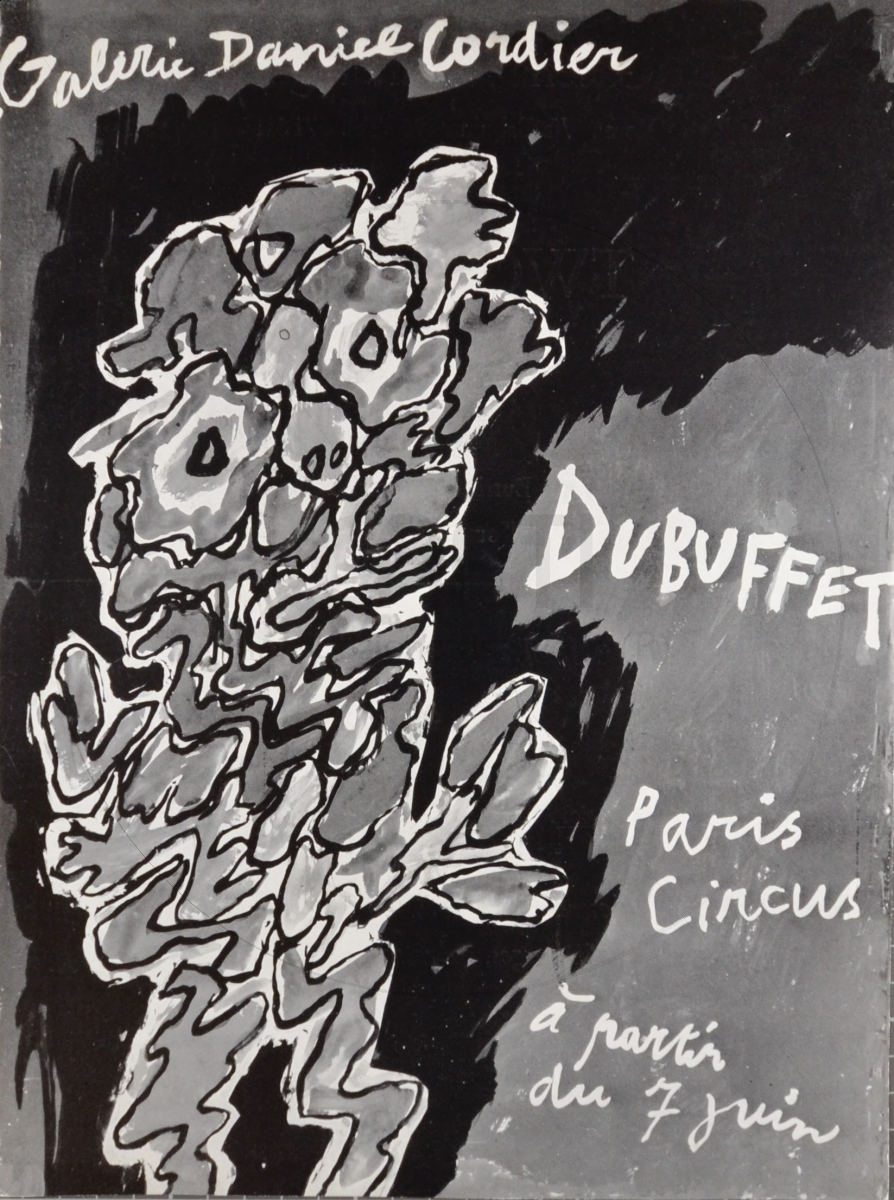 Galerie Daniel Cordier
DUBUFFET
Paris
Circus
à partir
du 7 juin